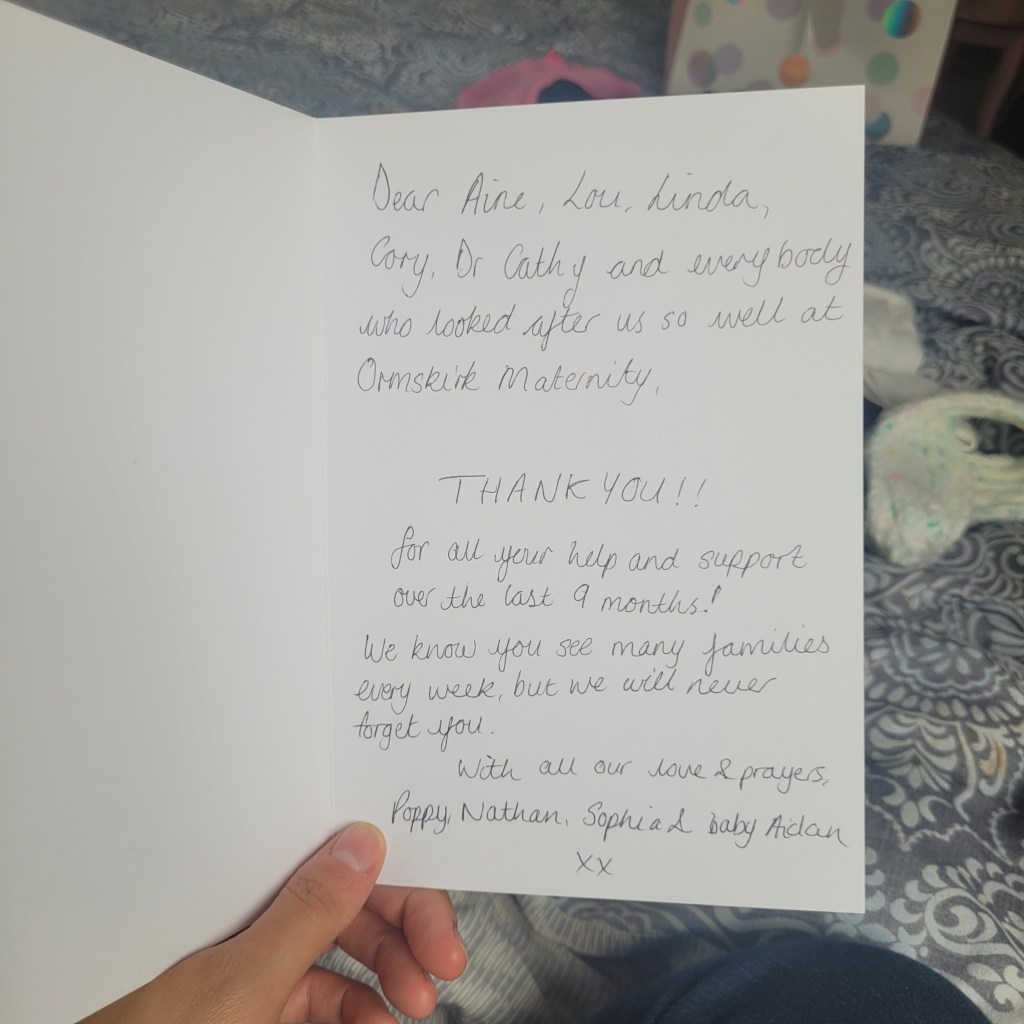 Dear Aine, Lou, Linda,
Cory, Dr Cathy and everybody
who looked after us so well at
Ormskirk Maternity,
THANK YOU!!
for all your help and support
over the last 9 months!
We know you see many families
every week, but we will never
forget you.
With all our love & prayers,
Poppy, Nathan, Sophia & baby Aidan
xx